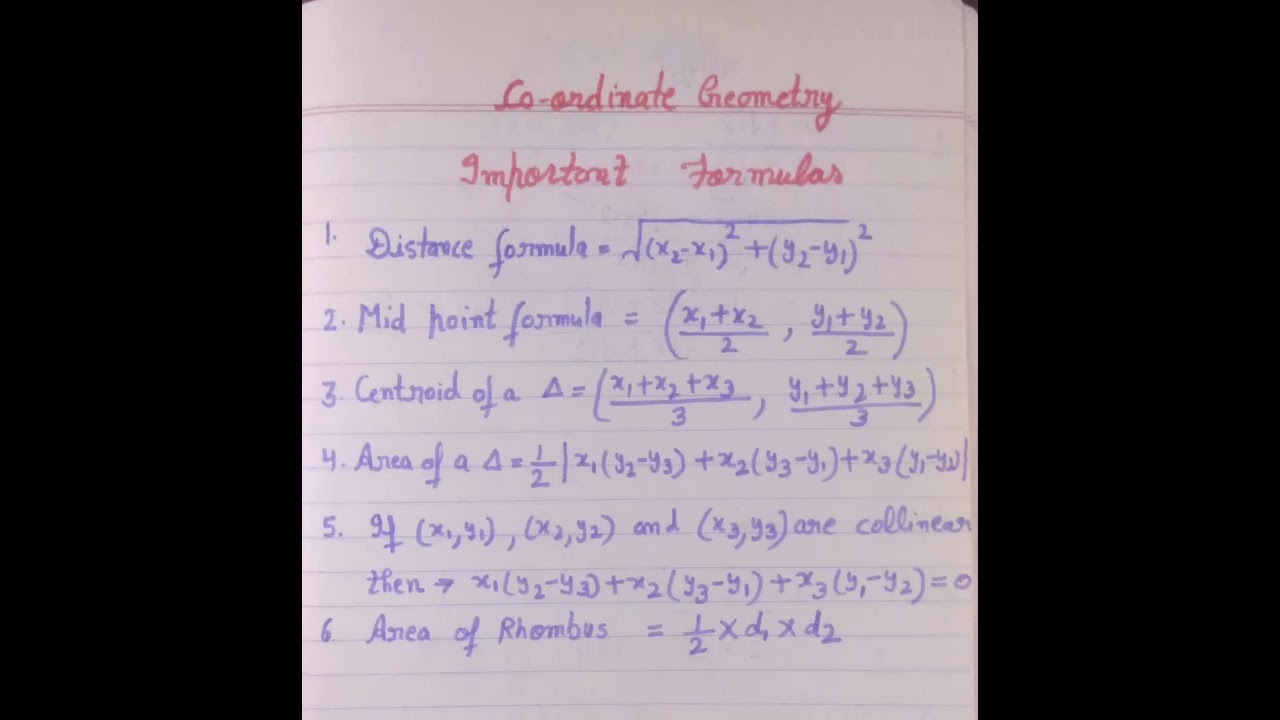 Co-ordinate Geometry
Important Formulas
1. Distance formula = √(x₂-x₁)² + (y₂-y₁)²
2. Mid point formula = ( x₁+x₂/2 , y₁+y₂/2 )
3. Centroid of a Δ = ( x₁+x₂+x₃/3 , y₁+y₂+y₃/3 )
4. Area of a Δ = 1/2 | x₁(y₂-y₃) + x₂(y₃-y₁) + x₃(y₁-y₂) |
5. If (x₁,y₁) , (x₂,y₂) and (x₃,y₃) are collinear
then → x₁(y₂-y₃) + x₂(y₃-y₁) + x₃(y₁-y₂) = 0
6 Area of Rhombus = 1/2 × d₁ × d₂